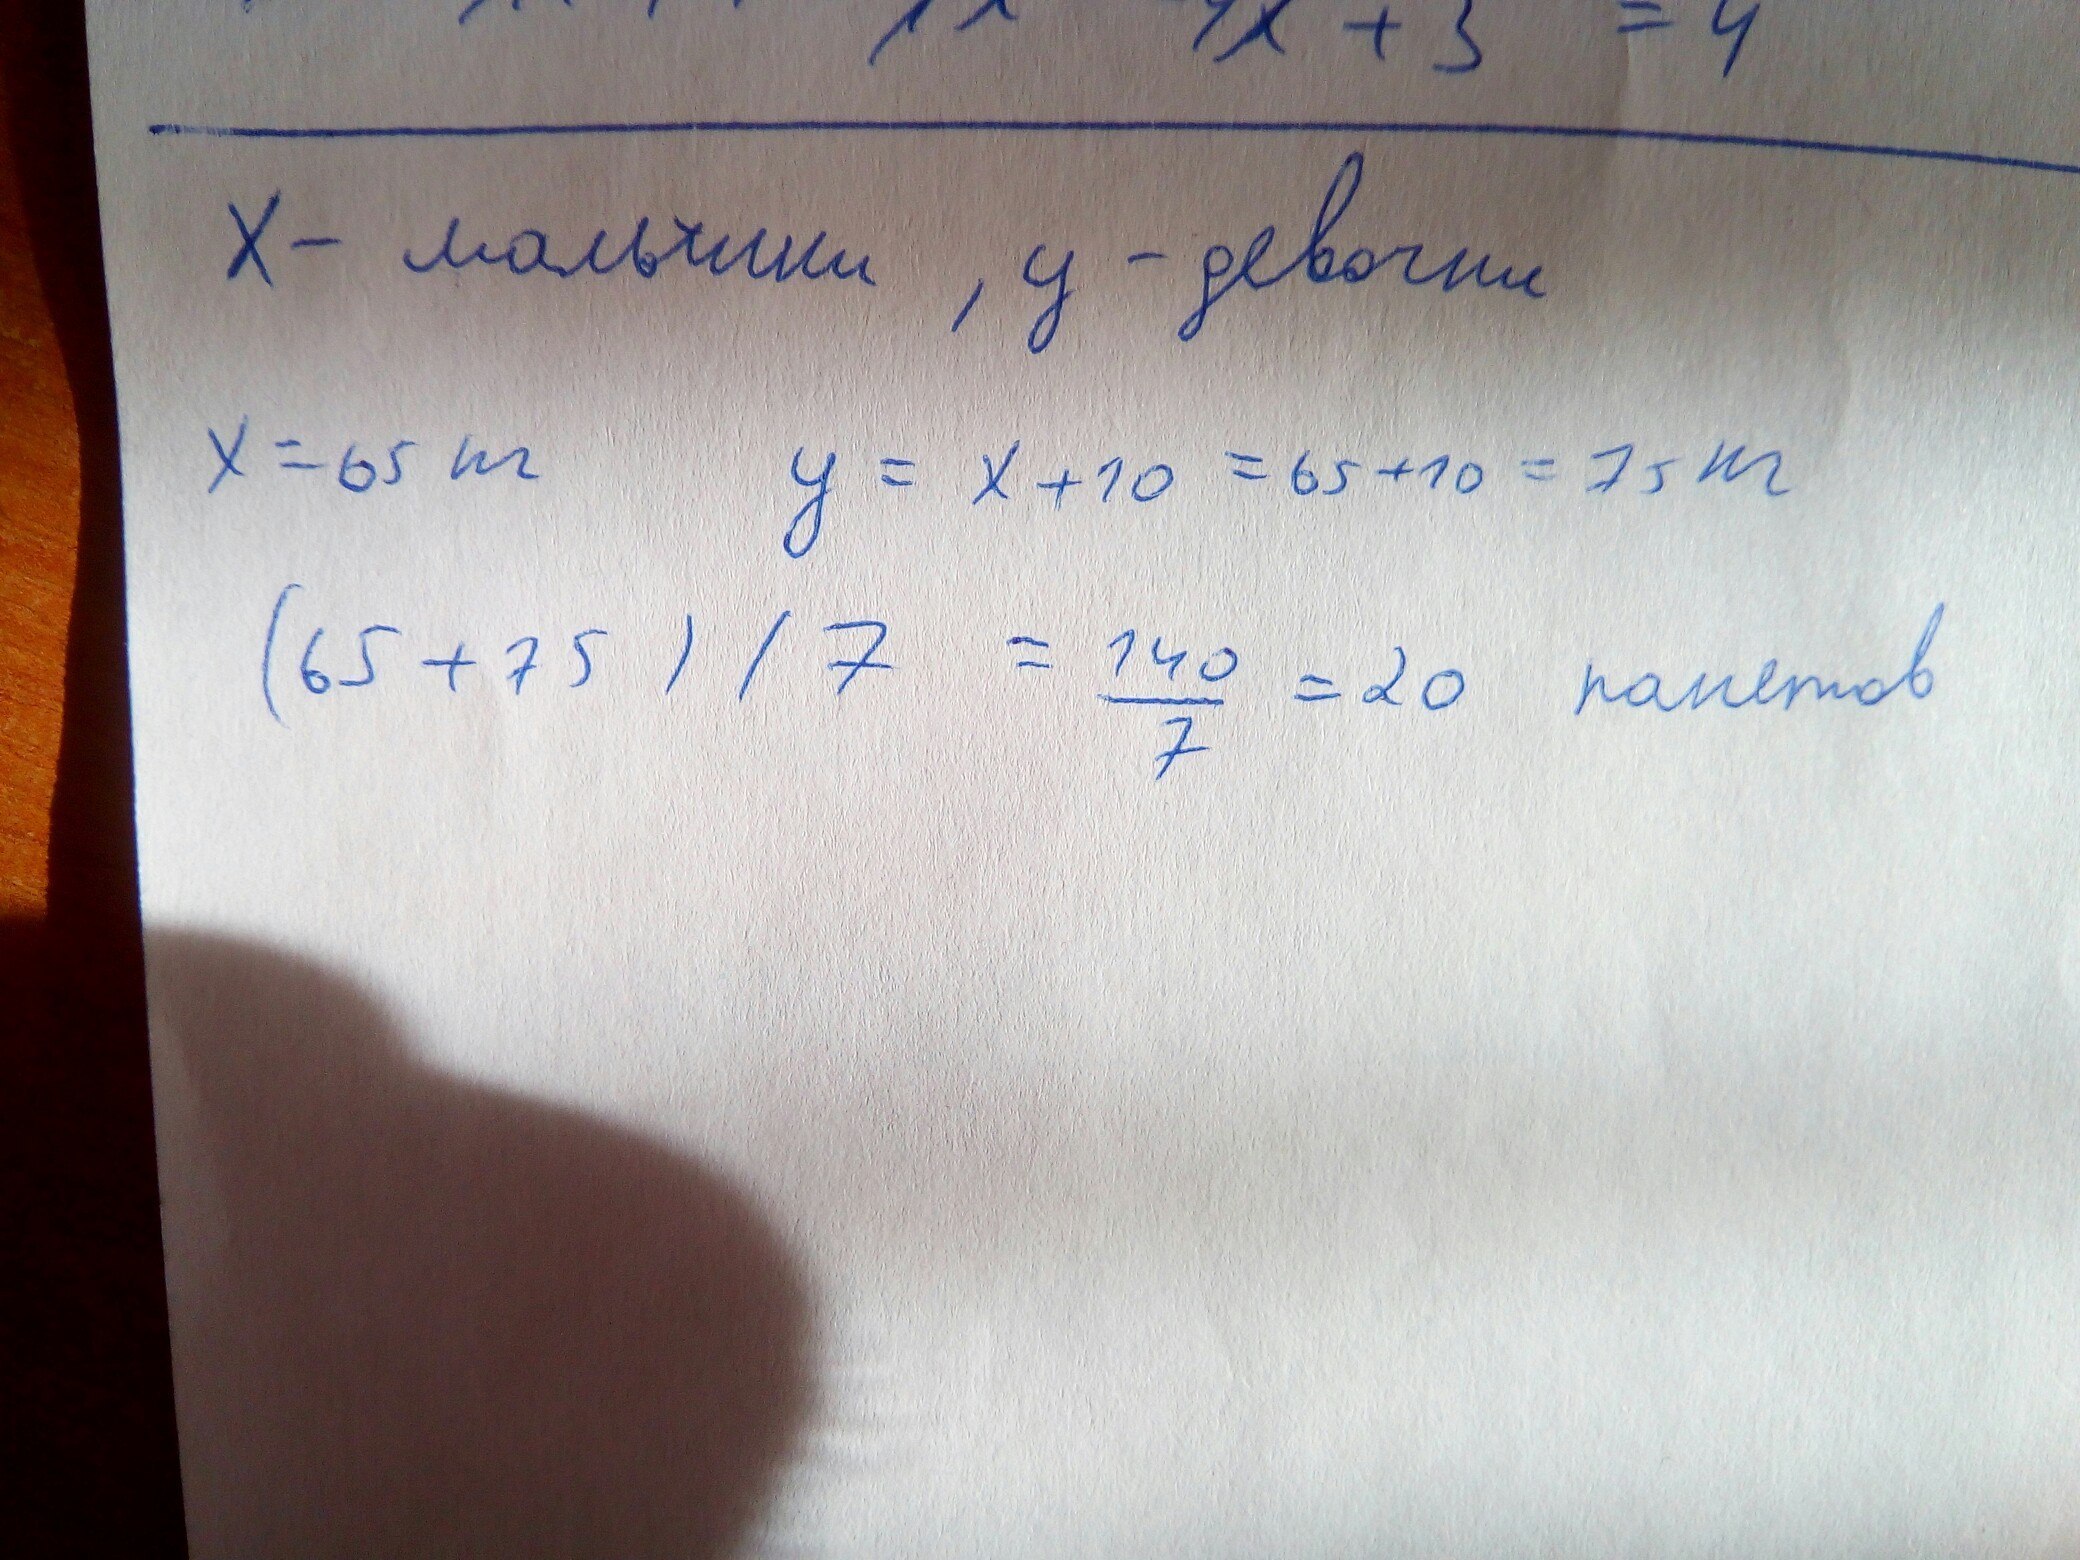 4x + 3 = 4
X - мальчики, y - девочки
x = 65 кг y = x + 10 = 65 + 10 = 75 кг
(65 + 75) / 7 = 140/7 = 20 пакетов